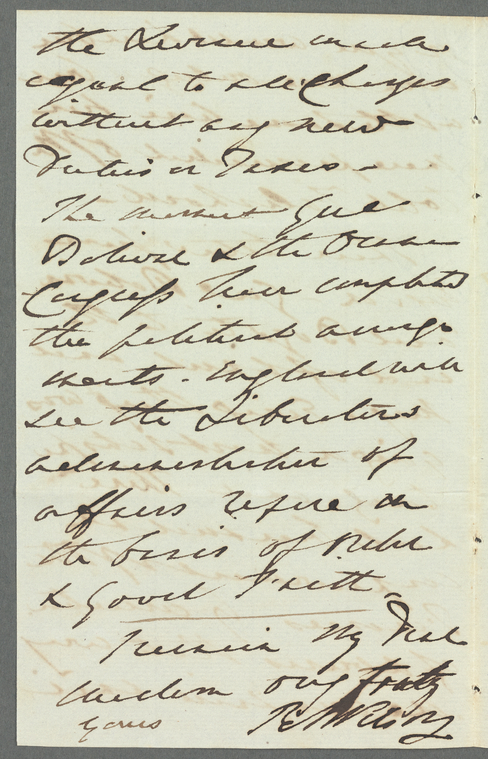 the Revenue made
equal to all Charges
without any new
Duties or Taxes -
The moment Genl
Bolivar & the Ocana
Congress have completed
the political arrange
ments - England will
see the Liberators
administration of
affairs repose on
the basis of Public
& Good Faith -
Remain My Dear
Madam very truly
yours R Wilson